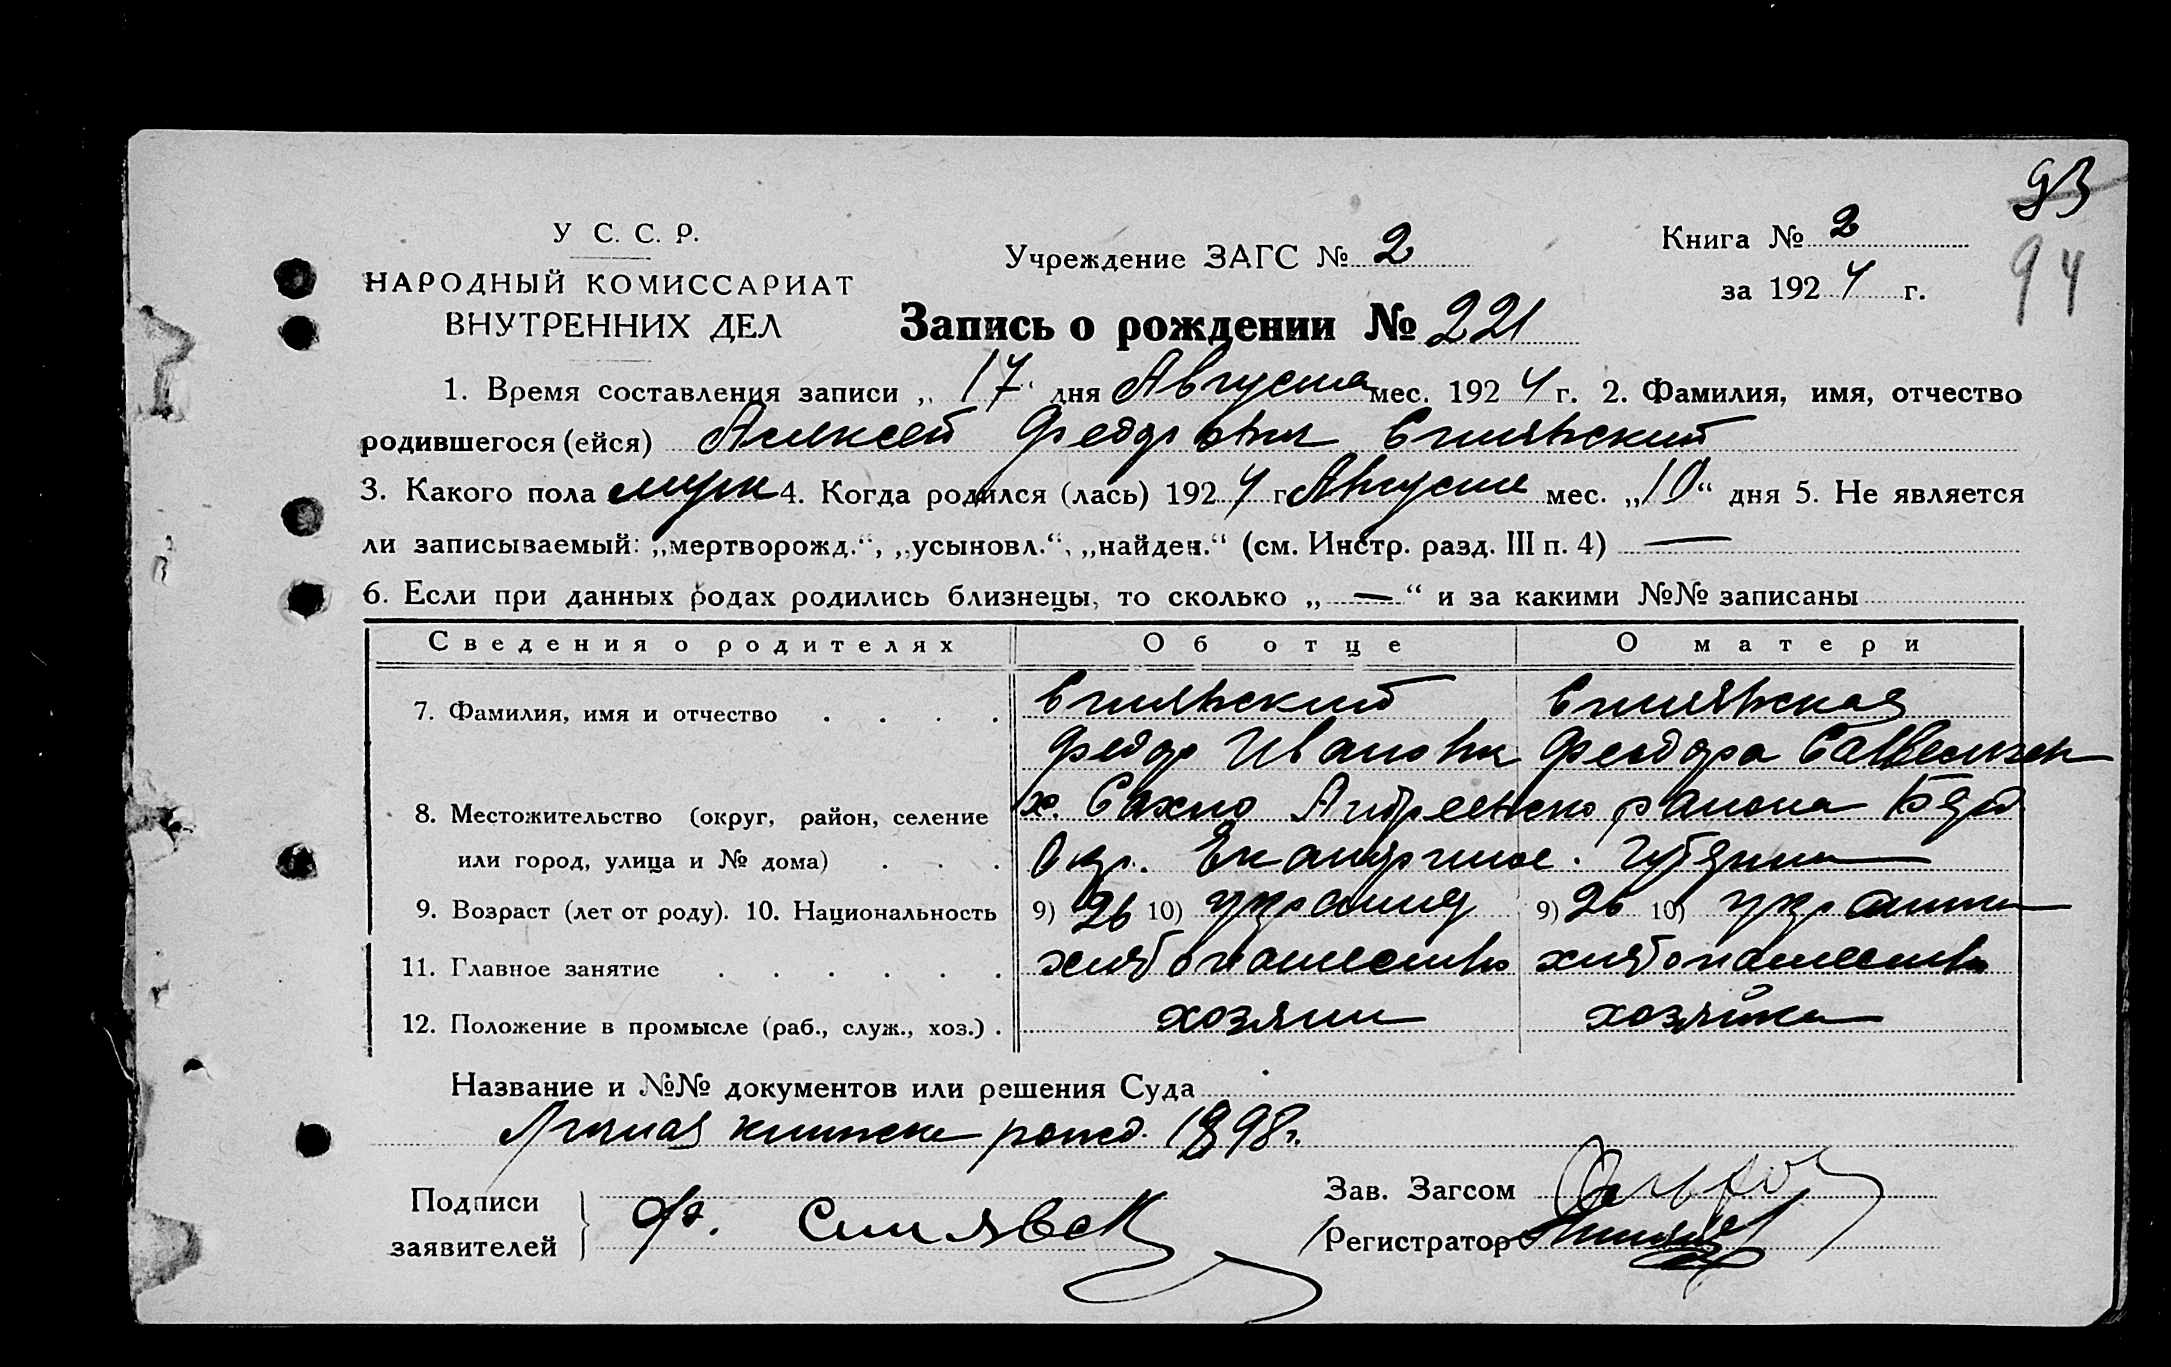 93
94
У С. С. Р.
НАРОДНЫЙ КОМИССАРИАТ
ВНУТРЕННИХ ДЕЛ
Учреждение ЗАГС № 2
Книга № 2
за 1924 г.
Запись о рождении № 221
1. Время составления записи „ 17 “ дня Августа мес. 1924 г. 2. Фамилия, имя, отчество
родившегося (ейся) Алексей Федоров Синявский
3. Какого пола муж 4. Когда родился (лась) 1924 г. Августа мес. „10“ дня 5. Не является
ли записываемый: „мертворожд.“, „усыновл.“, „найден.“ (см. Инстр. разд. III п. 4) —
6. Если при данных родах родились близнецы, то сколько „ — “ и за какими №№ записаны
Сведения о родителях Об отце О матери
7. Фамилия, имя и отчество . . . . Синявский Синявская
Федор Иванов Феодора
8. Местожительство (округ, район, селение х. Сахно Андреевско района Берд
или город, улица и № дома) . . . Окр. Екатерин. Губернии
9. Возраст (лет от роду). 10. Национальность 9) 26 10) украинц 9) 26 10) украинка
11. Главное занятие . . . . . . хлебопашество хлебопашество
12. Положение в промысле (раб., служ., хоз.) . хозяин хозяйка
Название и №№ документов или решения Суда
Личная книжка рожд. 1898 г.
Подписи
заявителей
Ф. Синявск
Зав. Загсом
Регистратор